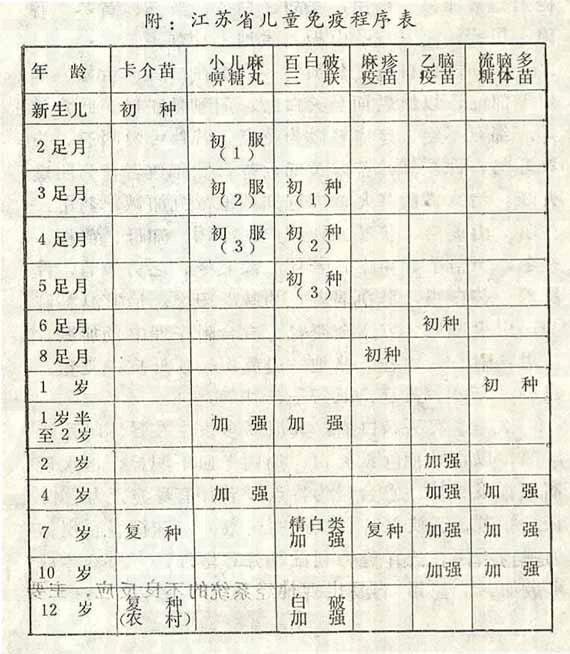 附：江苏省儿童免疫程序表
年 龄 卡介苗 小儿麻痹糖丸 百白破三联 麻疹疫苗 乙脑疫苗 流脑多糖体苗
新生儿 初 种
2足月 初 服（1）
3足月 初 服（2） 初 种（1）
4足月 初 服（3） 初 种（2）
5足月 初 种（3）
6足月 初种
8足月 初种
1 岁 初 种
1岁半至2岁 加 强 加 强
2 岁 加强
4 岁 加 强 加强 加 强
7 岁 复 种 精白类加强 复种 加强 加 强
10 岁 加强 加 强
12 岁 复 种（农 村） 白 破加 强
系统的不良反应，主要